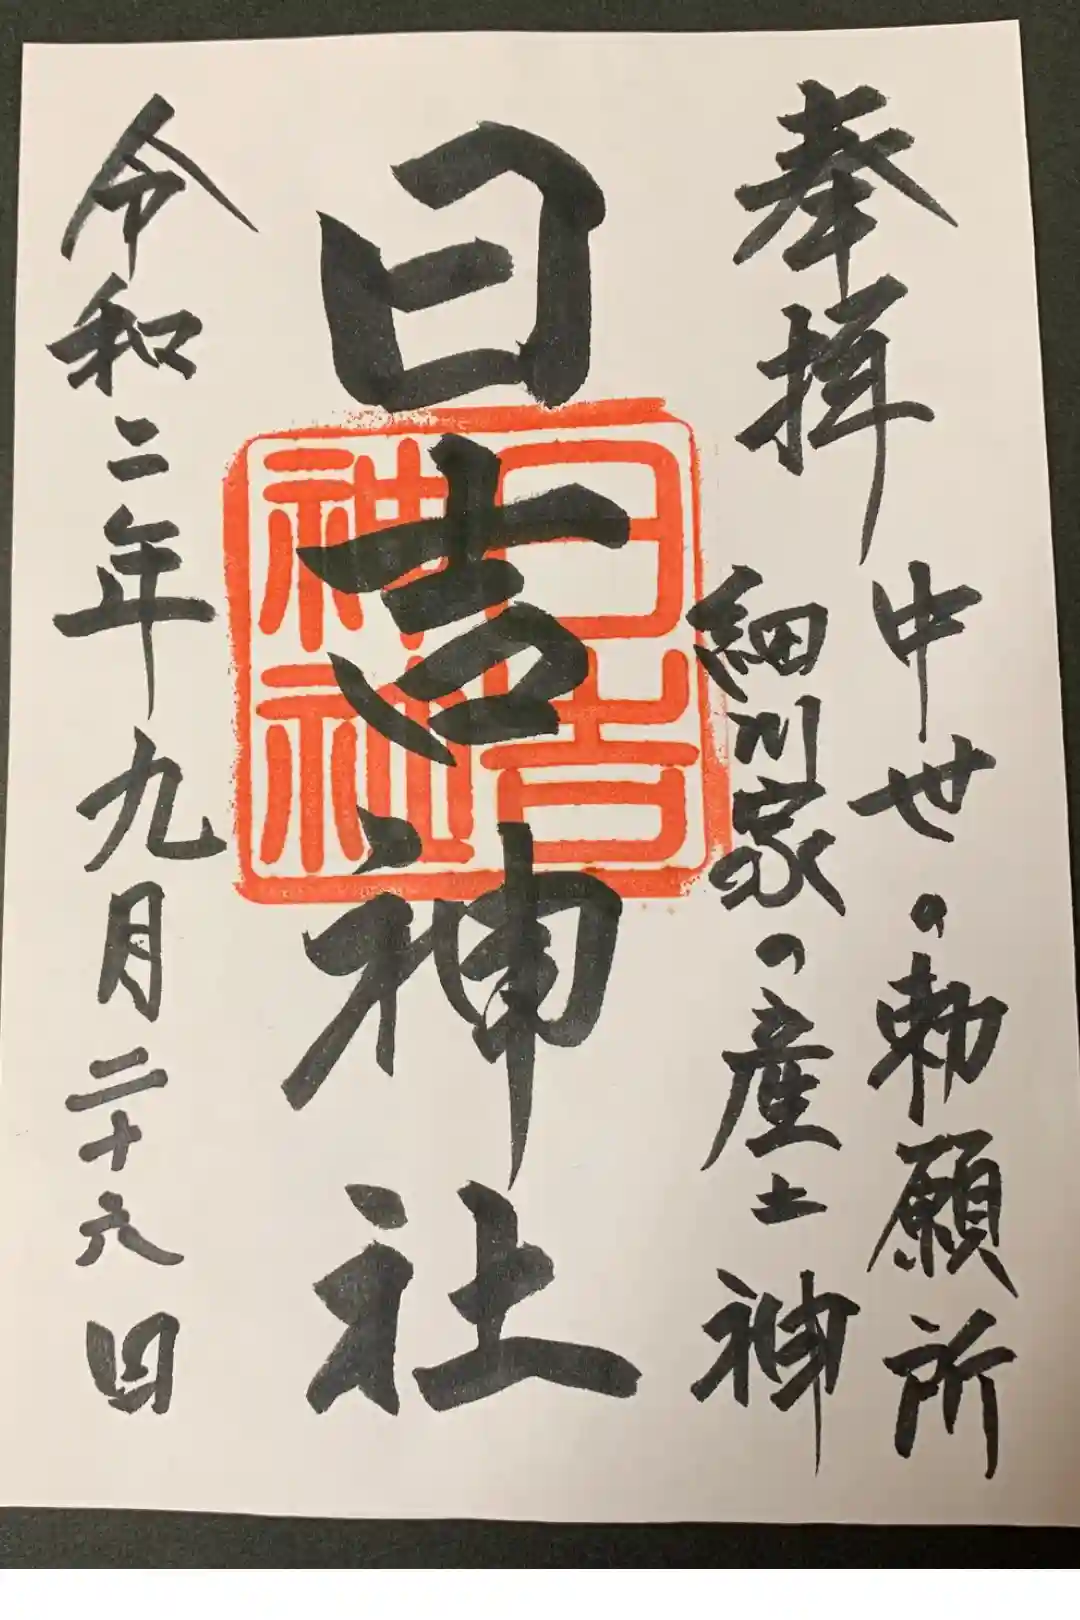 奉拝
中世の勅願所
細川家の産土神
日吉神社
日吉神社
令和二年九月二十六日